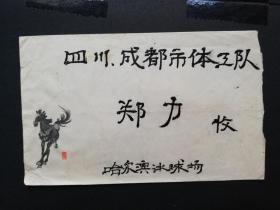 四川.成都市体工队
郑力 收
哈尔滨冰球场